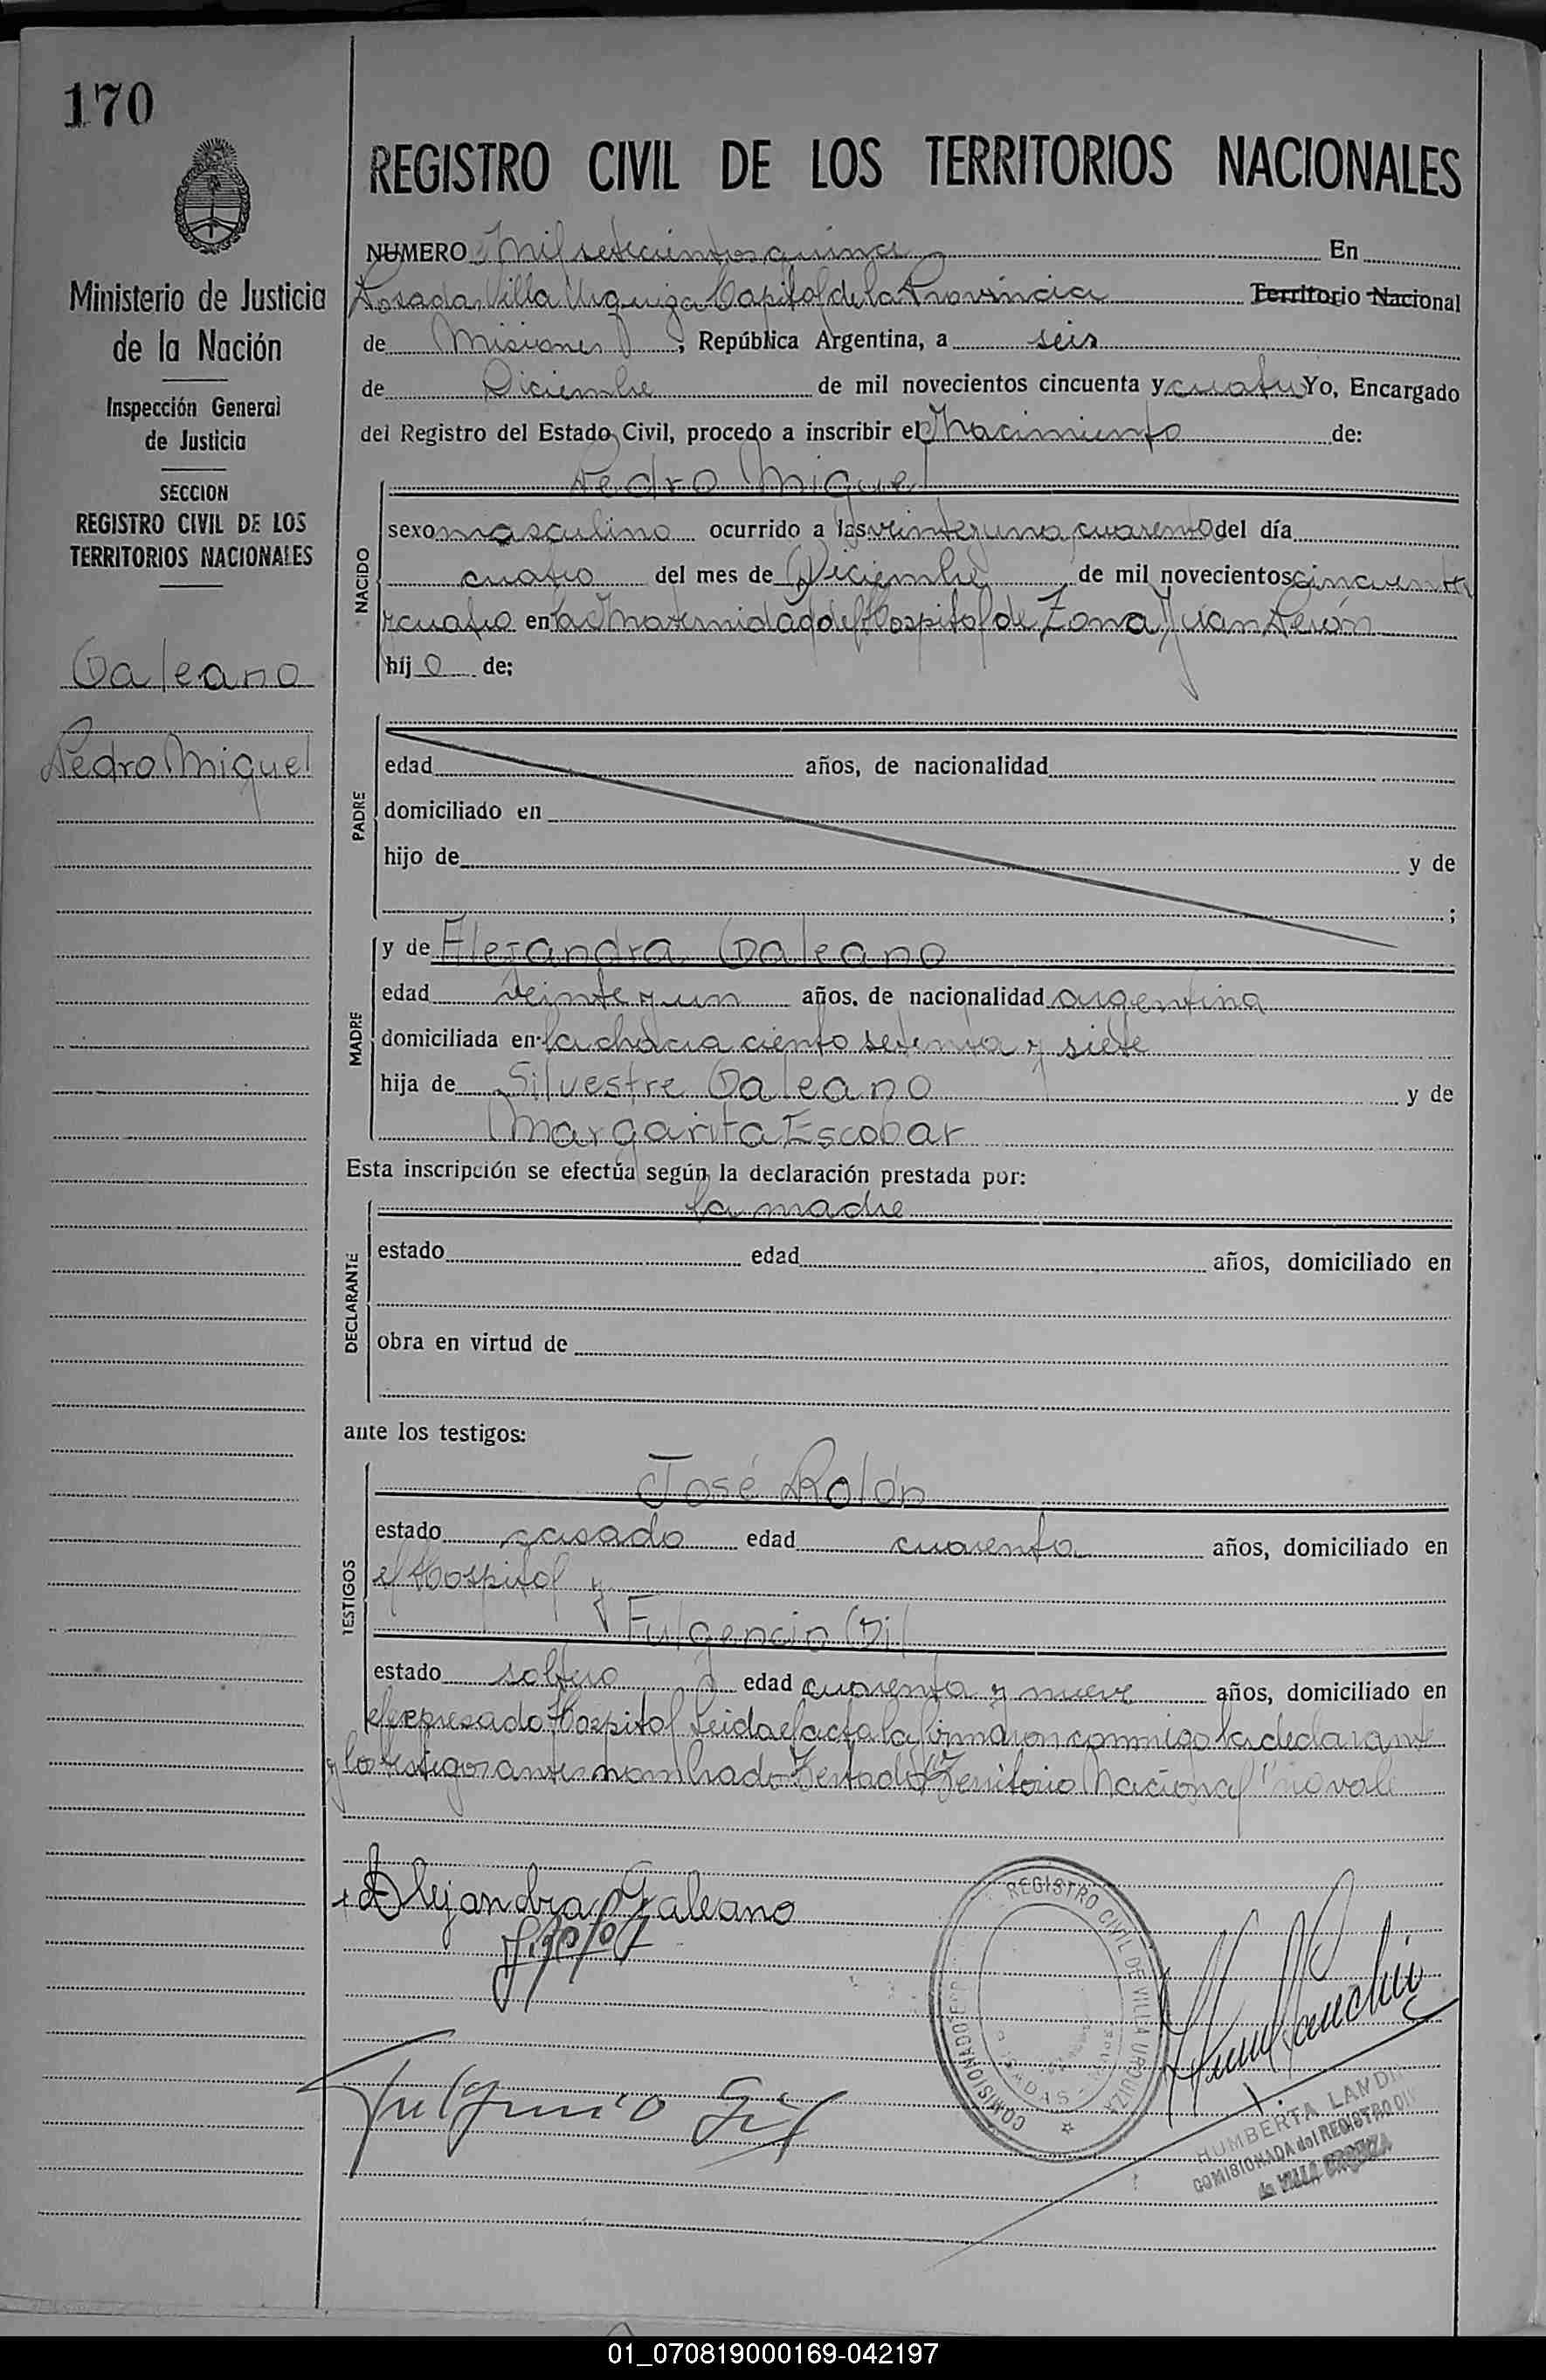 170
Ministerio de Justicia
de la Nación
Inspección General
de Justicia
SECCION
REGISTRO CIVIL DE LOS
TERRITORIOS NACIONALES
Galeano
Pedro Miguel
REGISTRO CIVIL DE LOS TERRITORIOS NACIONALES
NUMERO Mil setecientos quince En
Posadas, Villa Urquiza Capital de la Provincia Territorio Nacional
de Misiones, República Argentina, a seis
de Diciembre de mil novecientos cincuenta y cuatro Yo, Encargado
del Registro del Estado Civil, procedo a inscribir el Nacimiento de:
NACIDO
Pedro Miguel
sexo masculino ocurrido a las veinte y una, cuarenta del día
cuatro del mes de Diciembre de mil novecientos cincuenta
y cuatro en la Maternidad del Hospital de Zona Juan Perón
hijo de;
PADRE
edad años, de nacionalidad
domiciliado en
hijo de y de
;
MADRE
y de Alejandra Galeano
edad veinte y un años, de nacionalidad argentina
domiciliada en la chacra ciento setenta y siete
hija de Silvestre Galeano y de
Margarita Escobar
Esta inscripción se efectúa según la declaración prestada por:
DECLARANTE
la madre
estado edad años, domiciliado en
obra en virtud de
ante los testigos:
TESTIGOS
José Rolón
estado casado edad cuarenta años, domiciliado en
el Hospital y
Fulgencio Gil
estado soltero edad cuarenta y nueve años, domiciliado en
el expresado Hospital Leida el acta la firmaron conmigo la declarante
y los testigos antes nombrados Testado "Territorio Nacional" no vale
Alejandra Galeano
Fulgencio Gil
REGISTRO CIVIL DE VILLA URQUIZA
COMISIONADO
POSADAS
HUMBERTA
COMISIONADA del REGISTRO
de VILLA URQUIZA
01_070819000169-042197